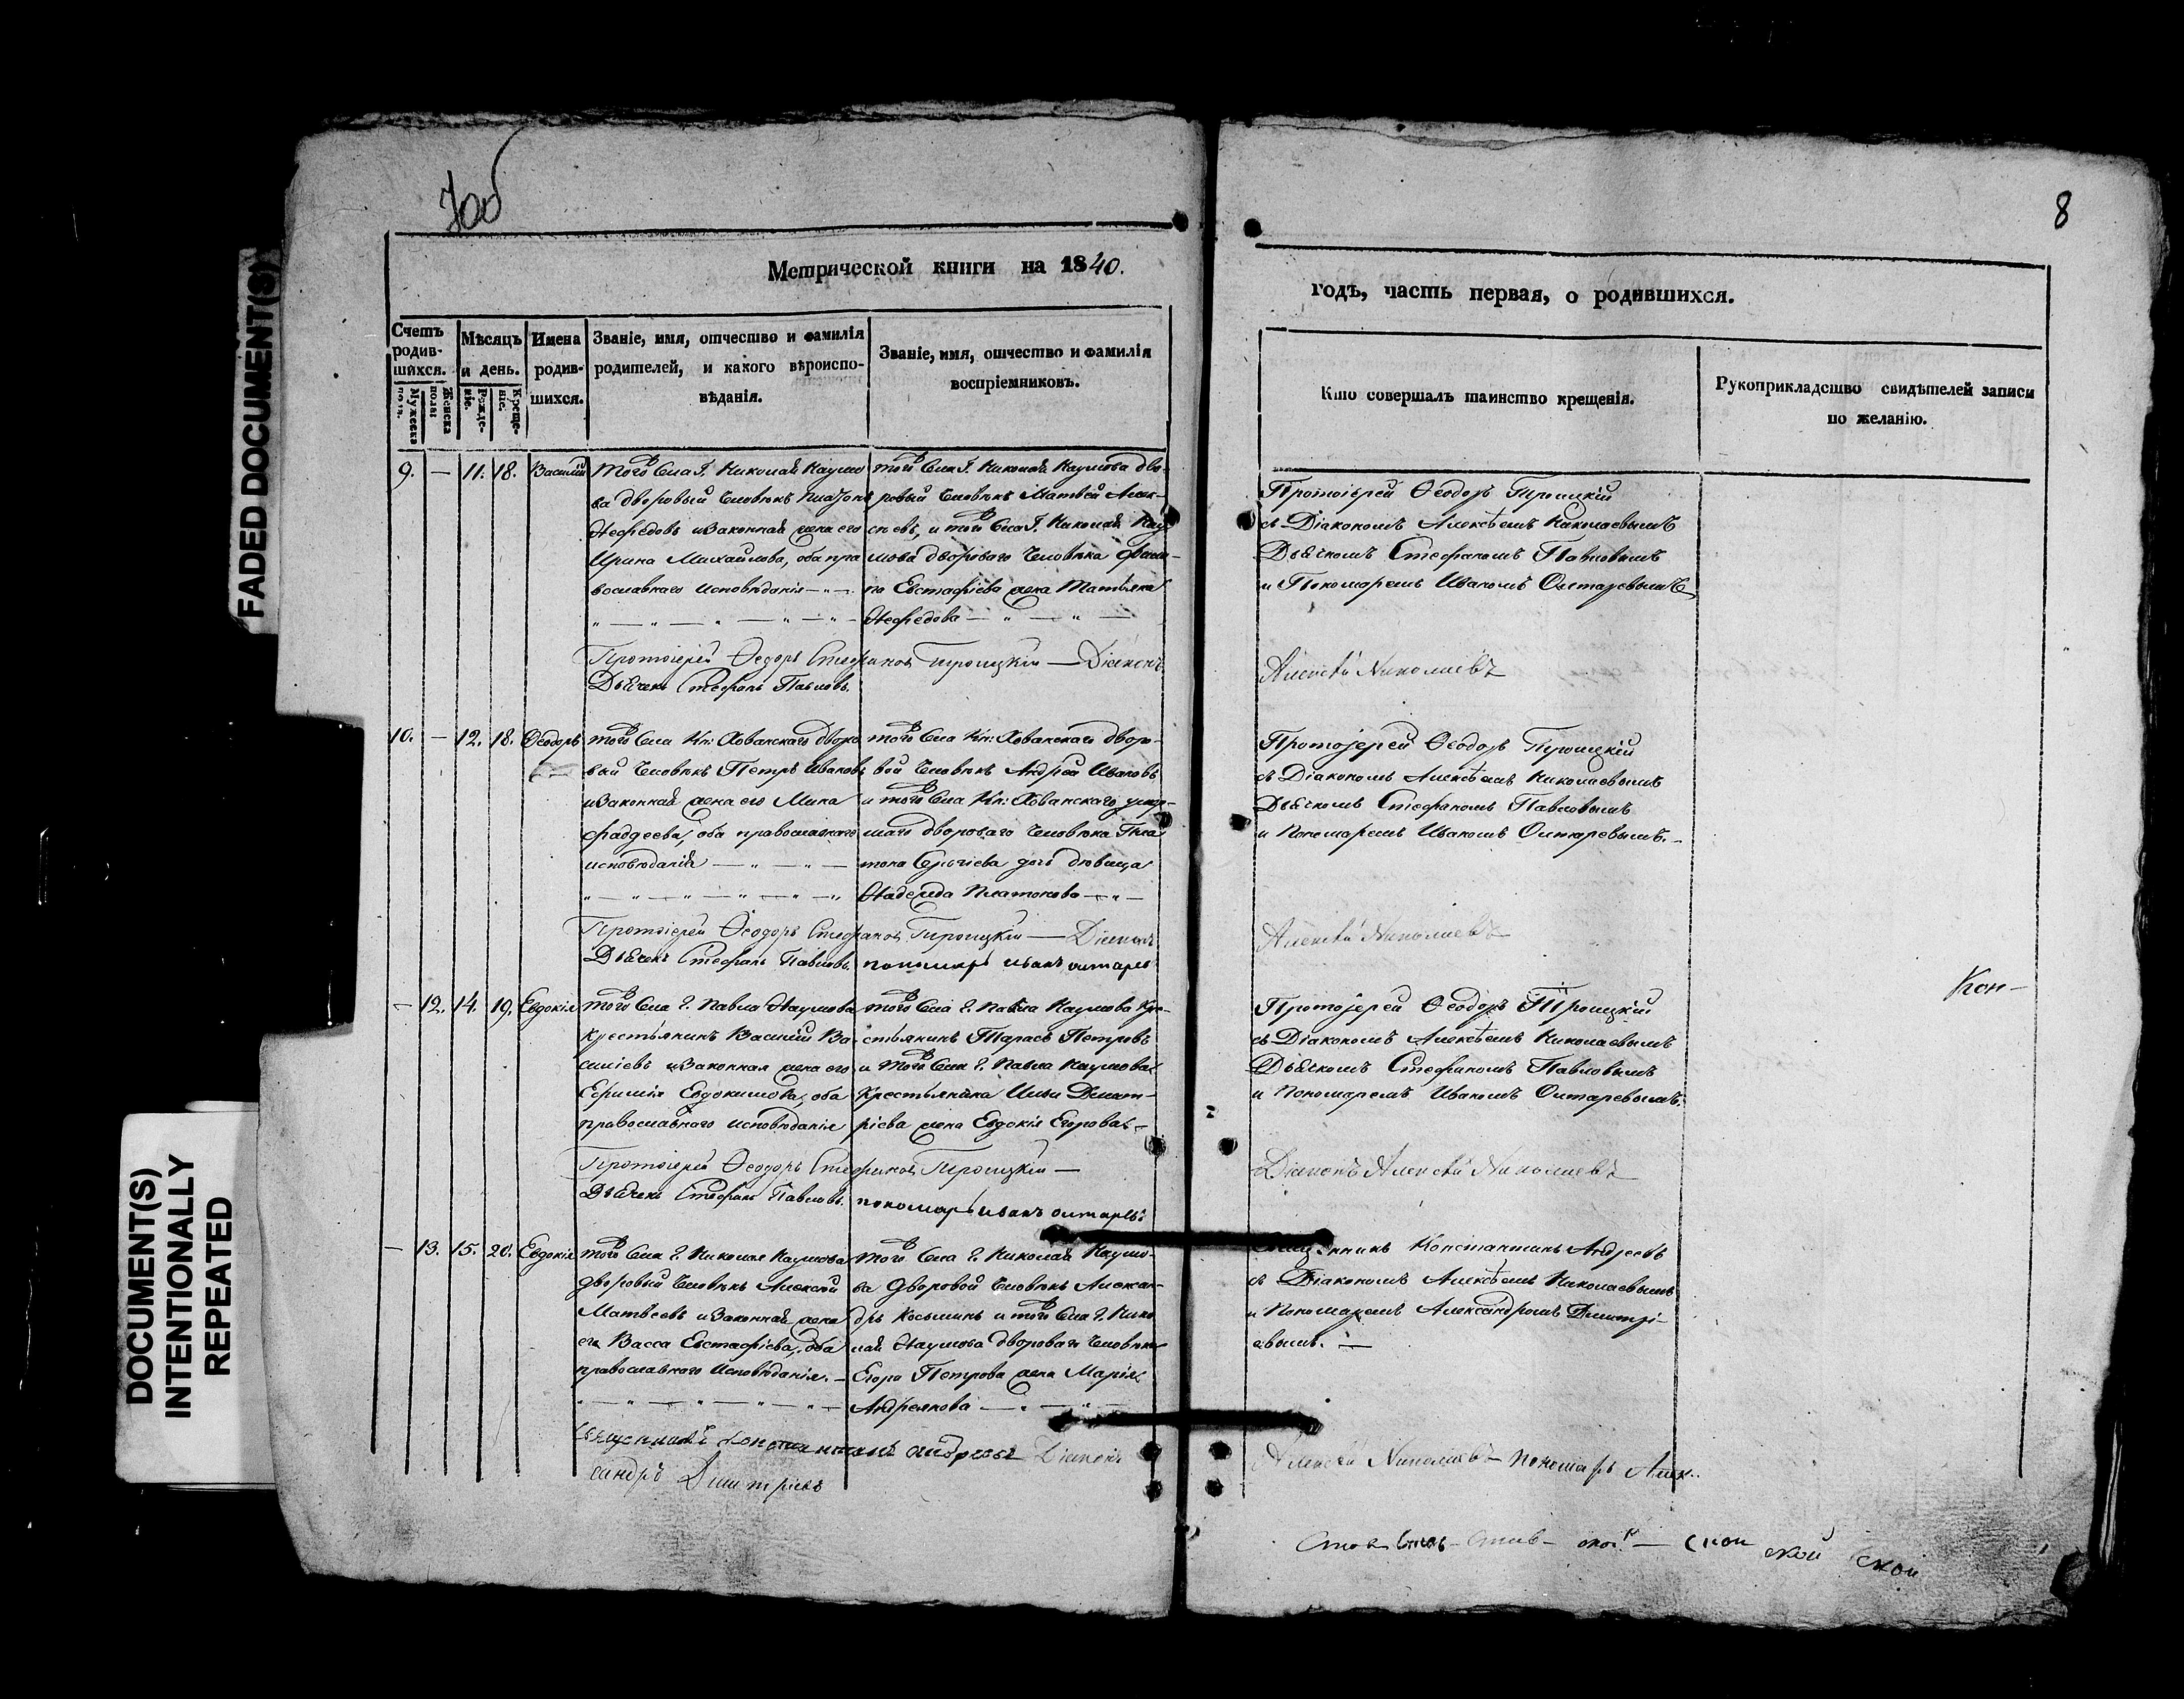 7об
8
FADED DOCUMENT(S)
DOCUMENT(S)
INTENTIONALLY
REPEATED
Метрической книги на 1840.
годъ, часть первая, о родившихся.
Счетъ родив-шихся.
Мужеска пола.
Женска пола.
Мѣсяцъ и день.
Рожде-ніе.
Креще-ніе.
Имена родив-шихся.
Званіе, имя, отчество и фамилія
родителей, и какого вѣроиспо-
вѣданія.
Званіе, имя, отчество и фамилія
воспріемниковъ.
Кто совершалъ таинство крещенія.
Рукоприкладство свидѣтелей записи
по желанію.
9. — 11. 18. Василій
Того Села Г. Николая Наумо
ва дворовый человѣкъ Платонъ
Нефедовъ и Законная жена его
Ирина Михайлова, оба пра
вославнаго исповѣданія
того Села Г. Николая Наумова дво-
ровый человѣкъ Матвей Алек-
сѣевъ, и того Села Г. Николая Нау
мова двороваго человѣка Филип-
па Евстафіева жена Татьяна
Нефедова
Протоіерей Ѳеодоръ Троицкій
съ Діакономъ Алексѣемъ Николаевымъ
Дьячкомъ Стефаномъ Павловымъ
и Пономаремъ Иваномъ Олтаревымъ
Протоіерей Ѳеодоръ Стефановъ Троицкій — Діаконъ
Алексѣй Николаевъ
Дьячекъ Стефанъ Павловъ.
10. — 12. 18. Ѳеодоръ
того Села Кн: Хованскаго дворо
вый человѣкъ Петръ Ивановъ
и Законная жена его
Фаддеева, оба православнаго
исповѣданія
того Села Кн: Хованскаго дворо-
вой человѣкъ Андрей Ивановъ
и того Села Кн: Хованскаго умер-
шаго двороваго человѣка Пла
тона Сергіева дочь дѣвица
Надежда Платонова
Протоіерей Ѳеодоръ Троицкій
съ Діакономъ Алексѣемъ Николаевымъ
Дьячкомъ Стефаномъ Павловымъ
и Пономаремъ Иваномъ Олтаревымъ.
Протоіерей Ѳеодоръ Стефановъ Троицкій — Діаконъ
Алексѣй Николаевъ
Дьячекъ Стефанъ Павловъ. пономарь иванъ олтаревъ
— 12. 14. 19. Евдокія
того Села Г. Павла Наумова
крестьянинъ Василій Ва
силіевъ и Законная жена его
Ефимія Евдокимова, оба
православнаго исповѣданія
того Села Г. Павла Наумова Кре-
стьянинъ Тарасъ Петровъ
и того Села Г. Павла Наумова
Крестьянина Ильи Димит-
ріева жена Евдокія Егорова
Протоіерей Ѳеодоръ Троицкій
съ Діакономъ Алексѣемъ Николаевымъ
Дьячкомъ Стефаномъ Павловымъ
и Пономаремъ Иваномъ Олтаревымъ.
Кон-
Протоіерей Ѳеодоръ Стефановъ Троицкій —
Діаконъ Алексѣй Николаевъ
Дьячекъ Стефанъ Павловъ. пономарь иванъ олтаревъ
— 13. 15. 20. Евдокія
того Села Г. Николая Наумова
дворовый человѣкъ Алексѣй
Матвеевъ и Законная жена
его Васса Евстафіева, оба
православнаго Исповѣданія.
того Села Г. Николая Наумо-
ва дворовой человѣкъ Алексан-
дръ Косьминъ и того Села Г. Нико
лая Наумова двороваго человѣка
Егора Петрова жена Марія
Андреянова
Константинъ Андреевъ
съ Діакономъ Алексѣемъ Николаевымъ
и Пономаремъ Александромъ Димитрі-
евымъ.
Священникъ Константинъ андреевъ Діаконъ
Алексѣй Николаевъ пономарь Алек..
сандръ Димитріевъ
скои скои скои